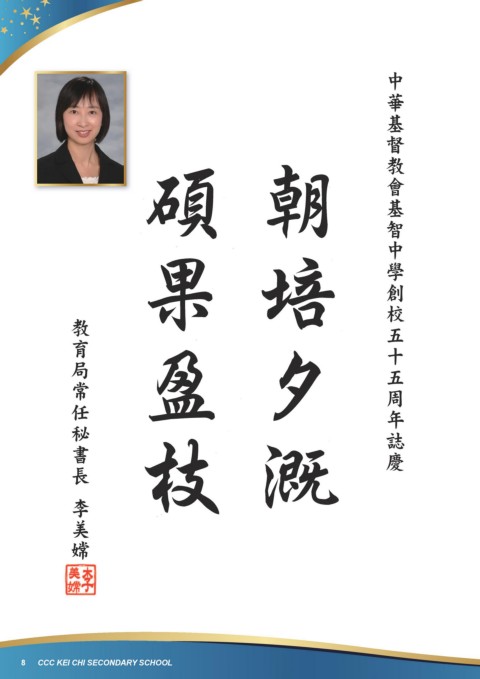 中華基督教會基智中學創校五十五周年誌慶
朝培夕溉
碩果盈枝
教育局常任秘書長 李美嫦
李美嫦
8 CCC KEI CHI SECONDARY SCHOOL